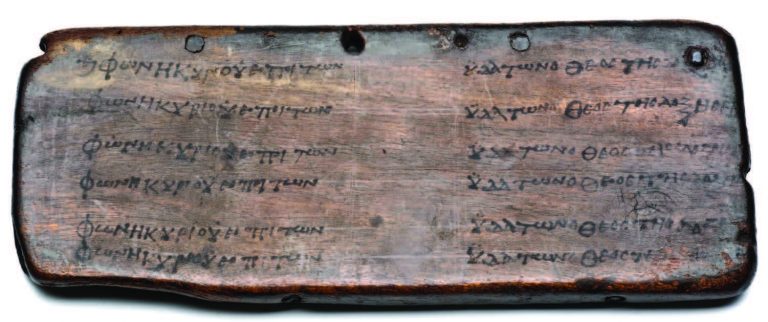 ϕωνη κυριου επι των υδατων ο θεοϲ τηϲ
ϕωνη κυριου επι των υδατων ο θεοϲ τηϲ δοξηϲ
ϕωνη κυριου επι των υδατων ο θεοϲ
ϕωνη κυριου επι των υδατων ο θεοϲ τηϲ
ϕωνη κυριου επι των υδατων ο θεοϲ τηϲ
ϕωνη κυριου επι των υδατων ο θεοϲ τηϲ